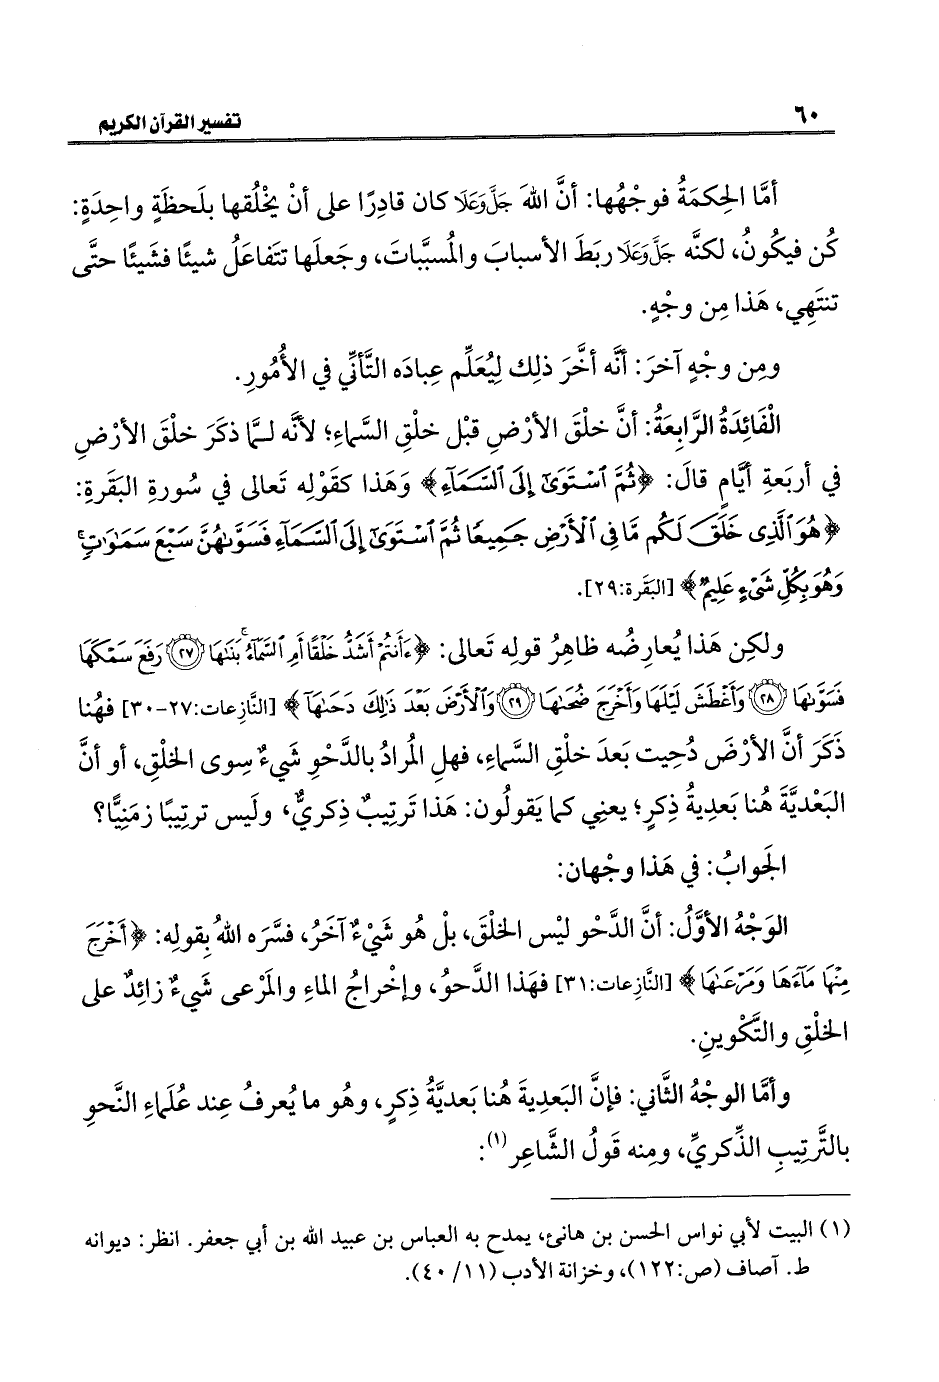 ٦٠
تفسير القرآن الكريم
أمَّا الحِكمَةُ فوجْهُها: أنَّ اللهَ جَلَّ وَعَلَا كان قادِرًا على أنْ يخْلُقها بلَحظَةٍ واحِدَةٍ:
كُن فيكُونُ، لكنَّه جَلَّ وَعَلَا ربَطَ الأسبابَ والمُسبَّباتَ، وجعَلَها تتَفاعَلُ شيئًا فشَيئًا حتَّى
تنتَهِي، هَذا مِن وجْهٍ.
ومِن وجْهٍ آخرَ: أنَّه أخَّرَ ذلِك ليُعَلِّم عِبادَه التَّأنِّي في الأُمُورِ.
الْفَائِدَةُ الرَّابِعَةُ: أنَّ خلْقَ الأرْضِ قبْل خلْقِ السَّماءِ؛ لأنَّه لـمَّا ذكَرَ خلْقَ الأرْضِ
في أربَعةِ أيَّامٍ قالَ: ﴿ثُمَّ ٱسْتَوَىٰٓ إِلَى ٱلسَّمَآءِ﴾ وَهَذا كقَوْلِه تَعالى في سُورةِ البَقَرةِ:
﴿هُوَ ٱلَّذِى خَلَقَ لَكُم مَّا فِى ٱلْأَرْضِ جَمِيعًا ثُمَّ ٱسْتَوَىٰٓ إِلَى ٱلسَّمَآءِ فَسَوَّىٰهُنَّ سَبْعَ سَمَٰوَٰتٍ ۚ
وَهُوَ بِكُلِّ شَىْءٍ عَلِيمٌ﴾ [البَقَرة:٢٩].
ولكِن هَذا يُعارِضُه ظاهِرُ قولِه تَعالى: ﴿ءَأَنتُمْ أَشَدُّ خَلْقًا أَمِ ٱلسَّمَآءُ ۚ بَنَىٰهَا ٢٧ رَفَعَ سَمْكَهَا
فَسَوَّىٰهَا ٢٨ وَأَغْطَشَ لَيْلَهَا وَأَخْرَجَ ضُحَىٰهَا ٢٩ وَٱلْأَرْضَ بَعْدَ ذَٰلِكَ دَحَىٰهَآ﴾ [النَّازعات:٢٧-٣٠] فهُنا
ذَكَرَ أنَّ الأرْضَ دُحِيت بَعدَ خلْقِ السَّماءِ، فهلِ المُرادُ بالدَّحْوِ شَيءٌ سِوى الخلْقِ، أو أنَّ
البَعْديَّةَ هُنا بَعديةُ ذِكرٍ؛ يعنِي كما يَقولُون: هَذا تَرتِيبٌ ذِكريٌّ، ولَيس ترتِيبًا زمَنِيًّا؟
الجَوابُ: في هَذا وجْهان:
الوَجْهُ الأوَّلُ: أنَّ الدَّحْو ليْس الخلْقَ، بلْ هُو شَيْءٌ آخَرُ، فسَّرَه اللهُ بقولِه: ﴿أَخْرَجَ
مِنْهَا مَآءَهَا وَمَرْعَىٰهَا﴾ [النَّازعات:٣١] فهَذا الدَّحوُ، وإخْراجُ الماءِ والمَرْعى شَيءٌ زائِدٌ على
الخلْقِ والتَّكْوينِ.
وأمَّا الوجْهُ الثَّاني: فإنَّ البَعدِيةَ هُنا بَعديَّةُ ذِكرٍ، وهُو ما يُعرفُ عِند عُلَماءِ النَّحوِ
بالتَّرتِيبِ الذِّكريِّ، ومِنه قَولُ الشَّاعِرِ (١):
(١) البيت لأبي نواس الحسن بن هانئ، يمدح به العباس بن عبيد الله بن أبي جعفر. انظر: ديوانه
ط. آصاف (ص:١٢٢)، وخزانة الأدب (١١/ ٤٠).